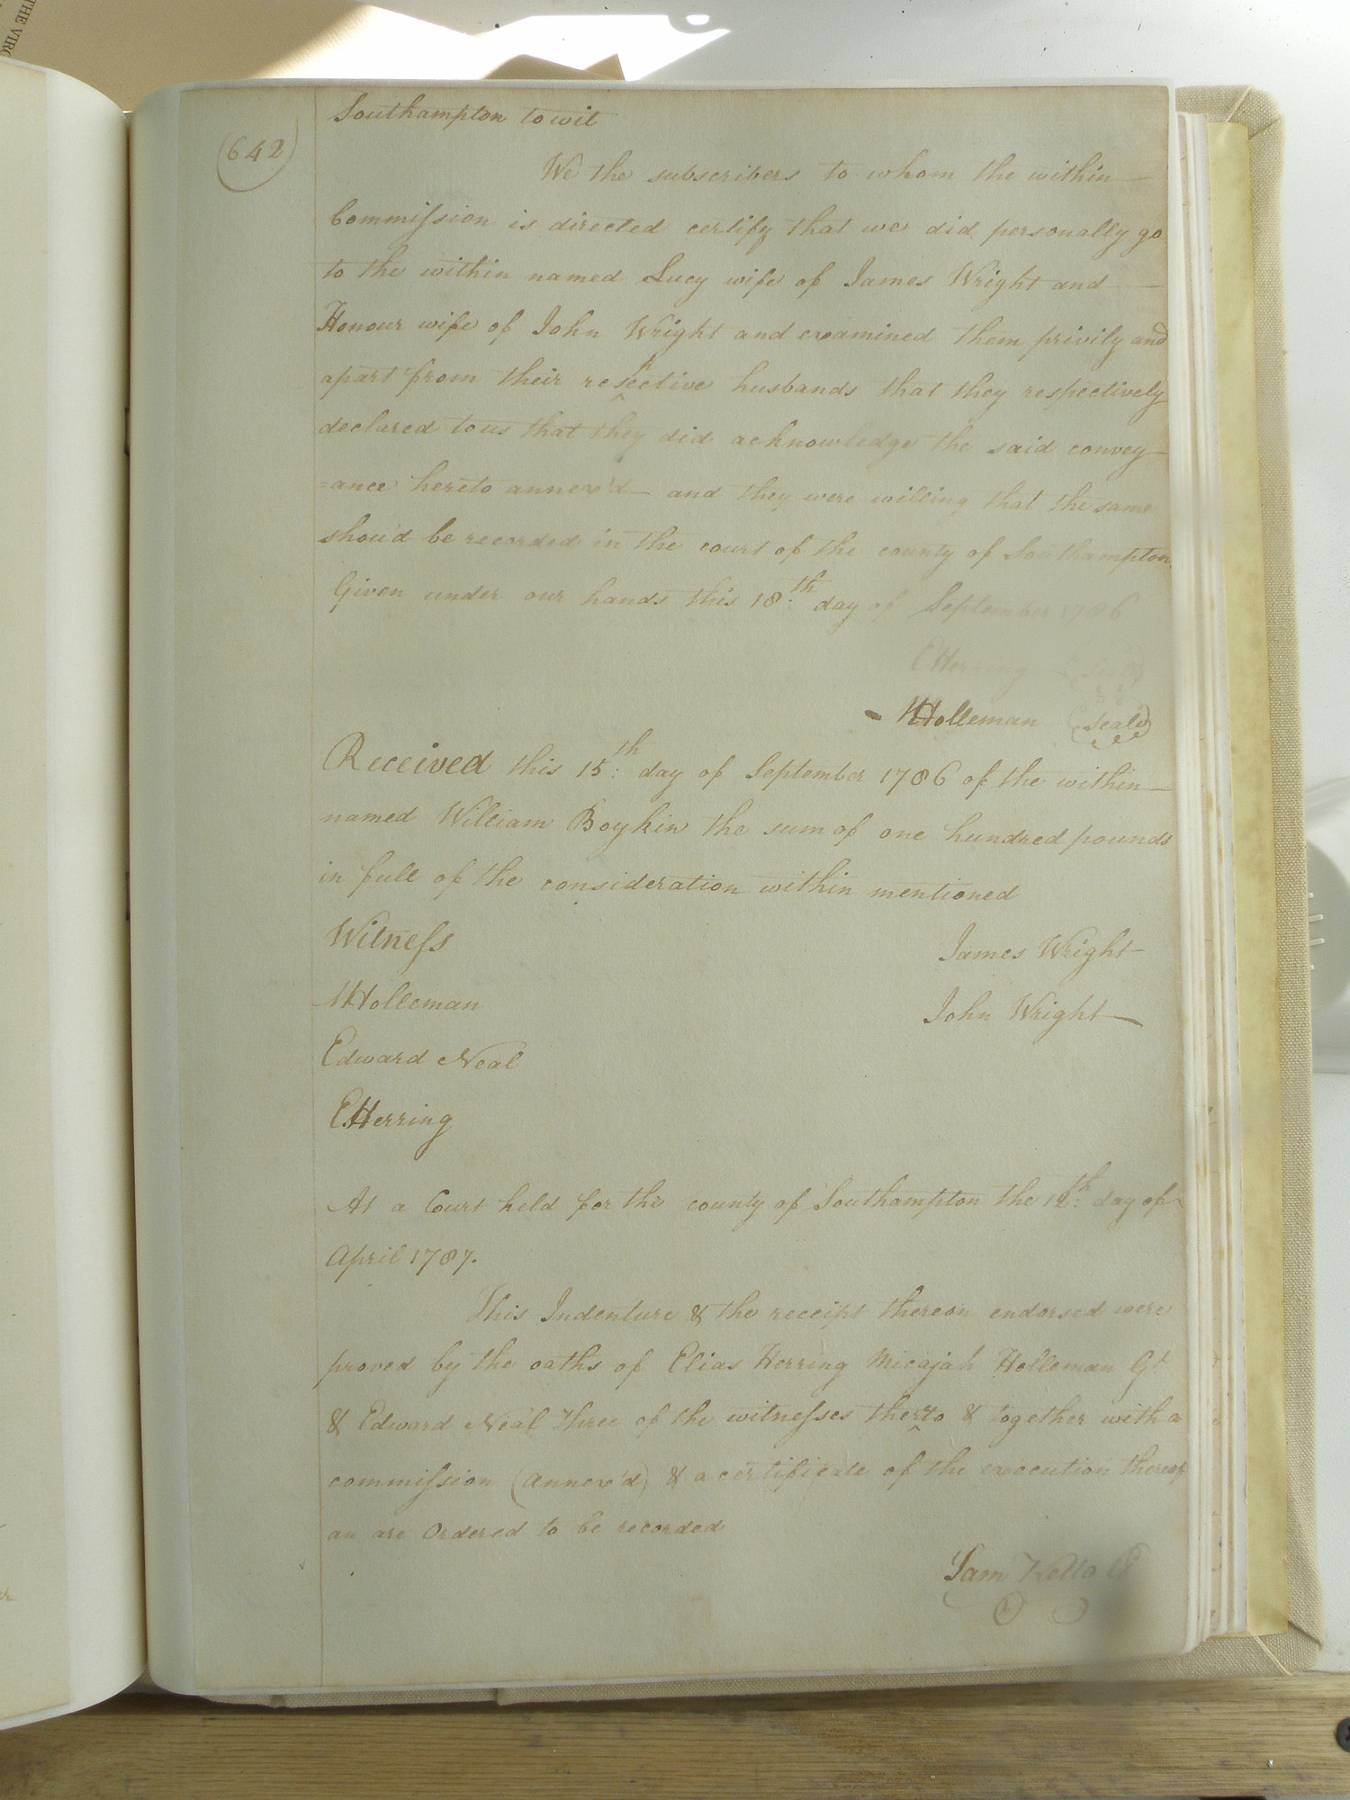 THE VIRG
(642)
Southampton to wit
We the subscribers to whom the within
Commission is directed certify that we did personally go
to the within named Lucy wife of James Wright and
Honour wife of John Wright and examined them privily and
apart from their respective husbands that they respectively
declared to us that they did acknowledge the said convey-
=ance hereto annex'd and they were willing that the same
shou'd be recorded in the court of the county of Southampton
Given under our hands this 18th day of September 1786
EHerring (Seal)
MHolleman (Seal)
Received this 15th day of September 1786 of the within
named William Boykin the sum of one hundred pounds
in full of the consideration within mentioned
Witness James Wright
MHolleman John Wright
Edward Neal
EHerring
At a Court held for the county of Southampton the 12th day of
April 1787.
This Indenture & the receipt thereon endorsed were
proved by the oaths of Elias Herring Micajah Holleman Gt
& Edward Neal Three of the witnesses thereto & together with a
commission (annex'd) & a certificate of the execution thereof
an are Ordered to be recorded
Sam Kello